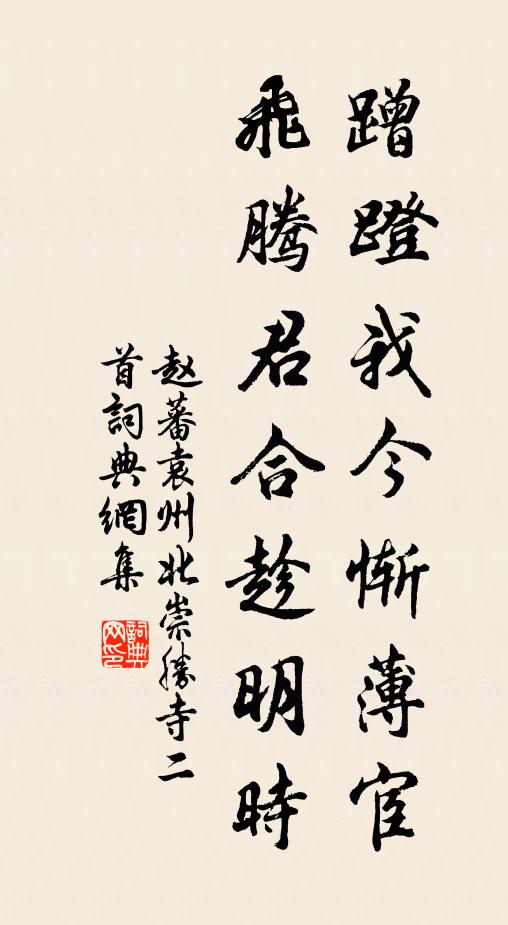 蹭蹬我今慚薄宦
飛騰君合趁明時
赵蕃袁州北崇勝寺二
首詞典網集
詞典
网印